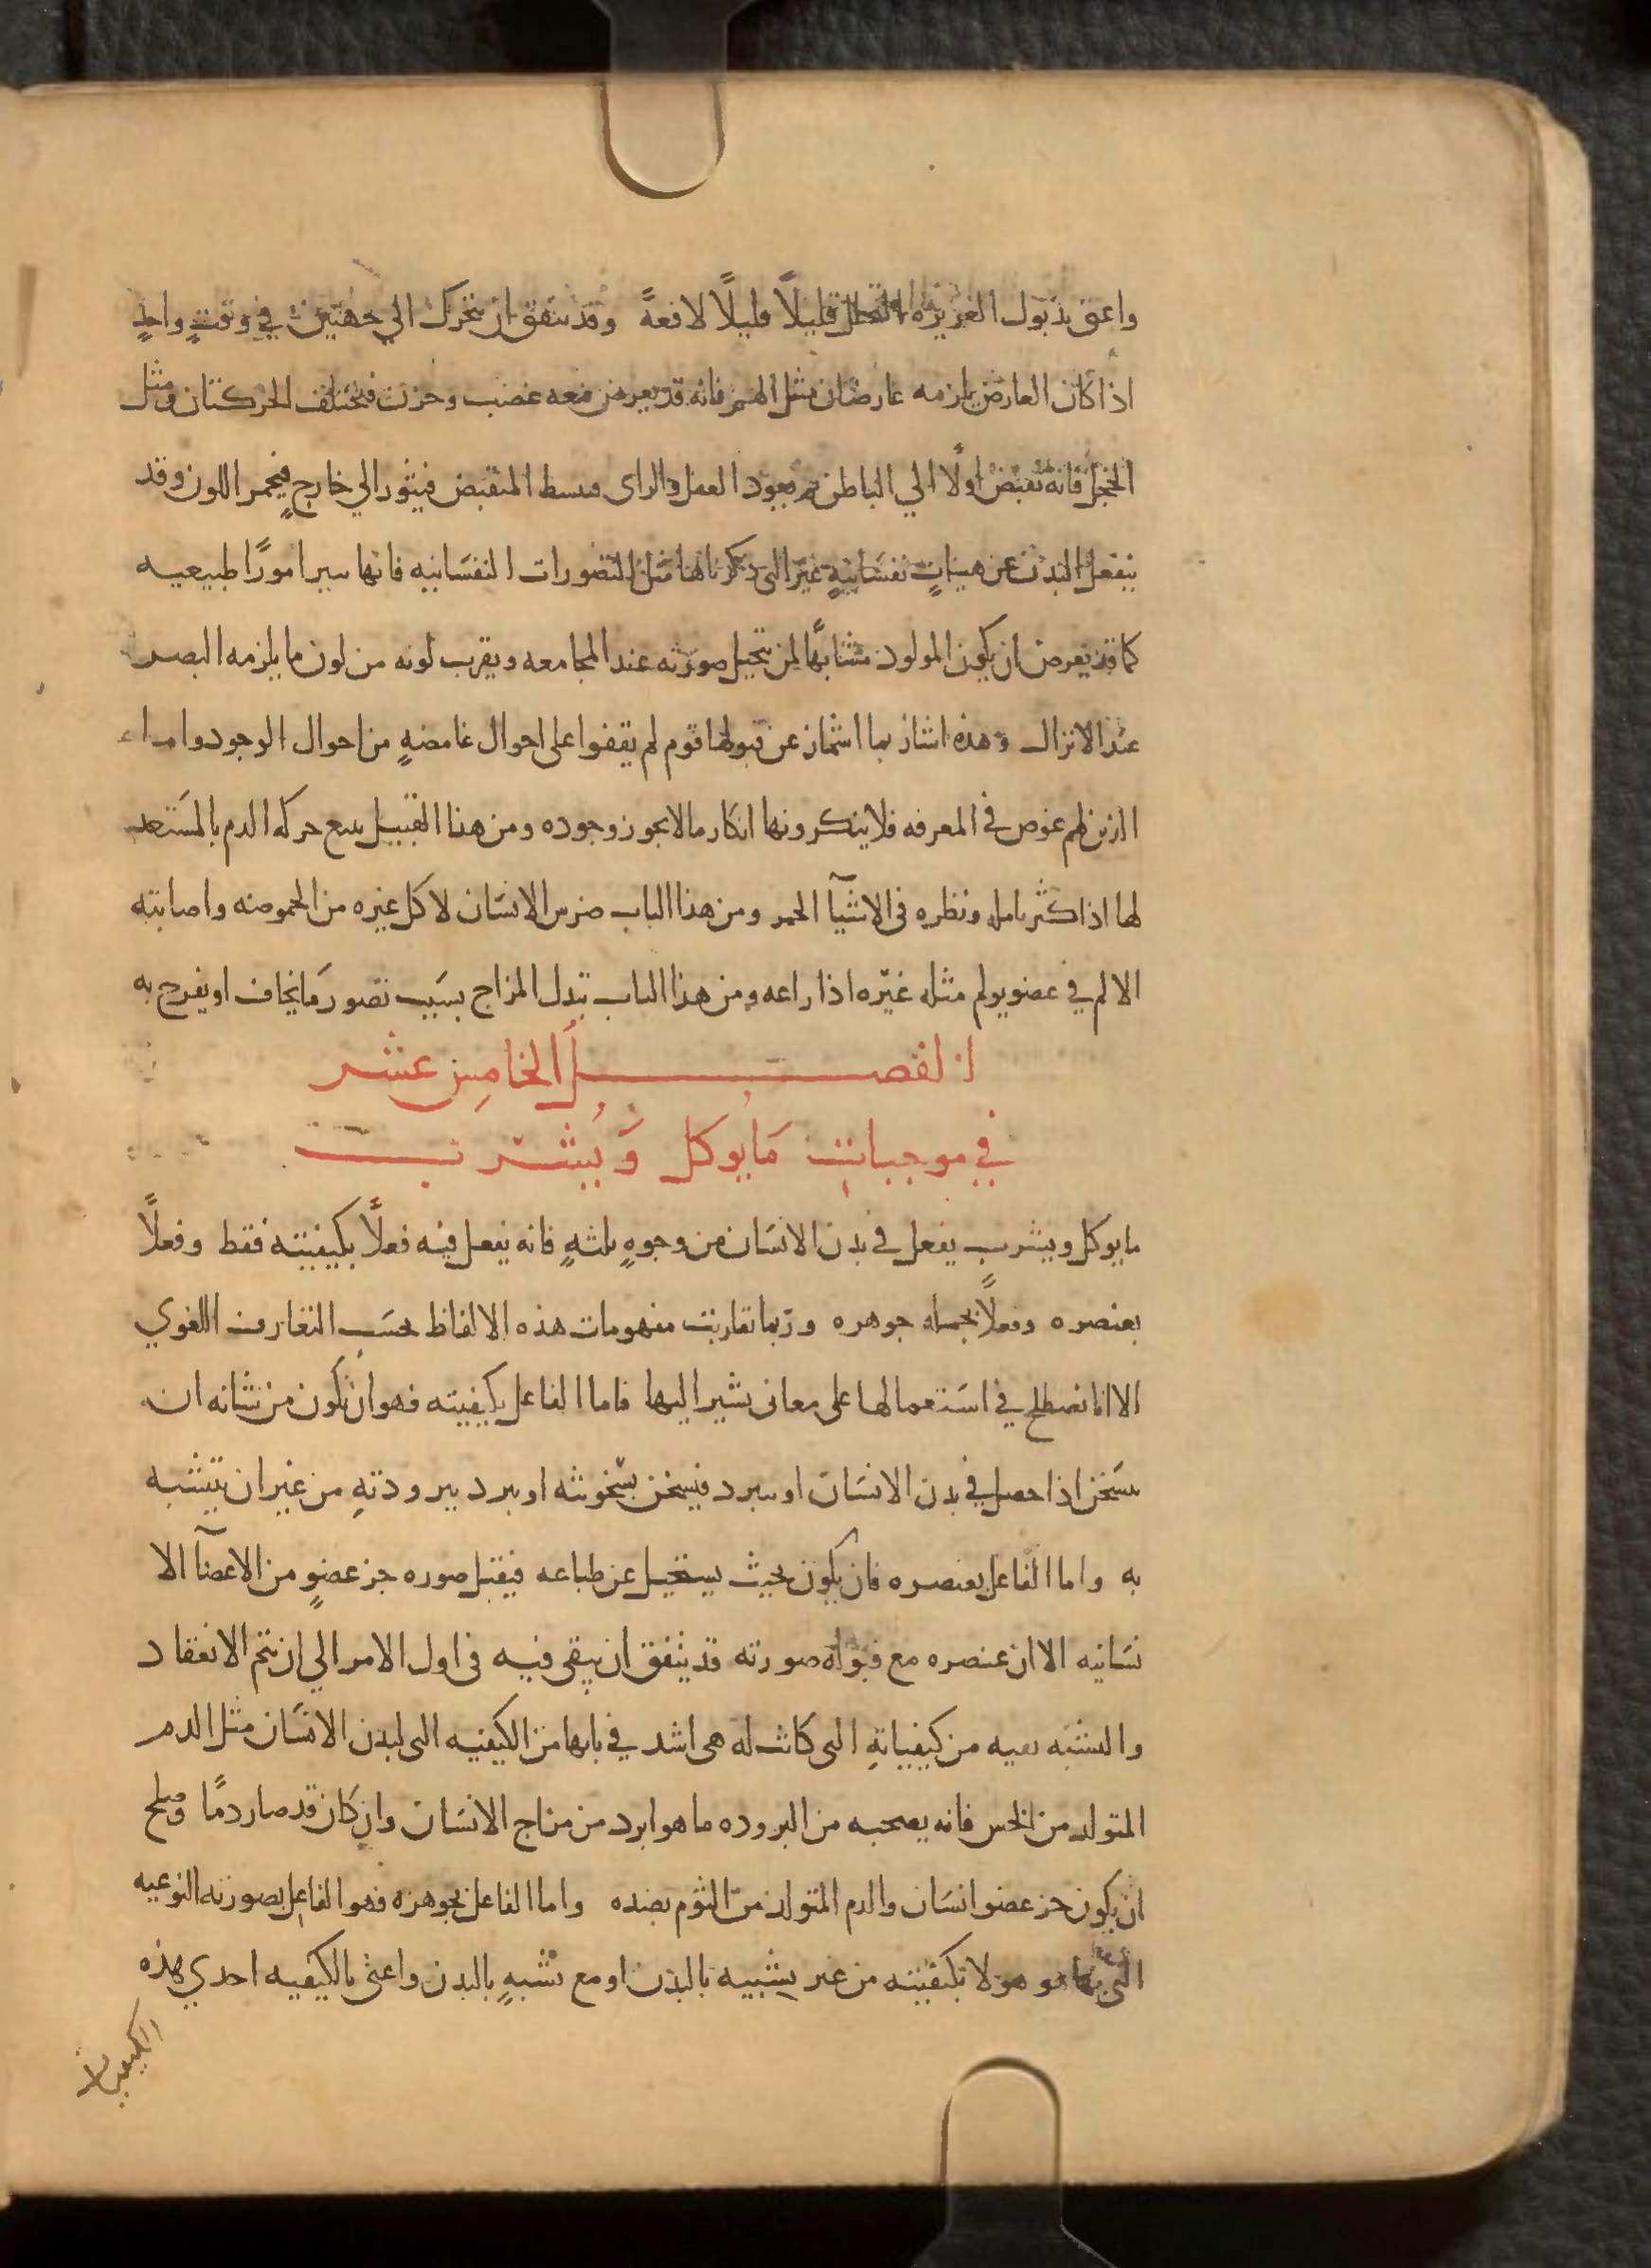 واعنى بذبول الغريزه التحلل قليلاً قليلاً لا دفعةً وقد يتفق ان يتحرك الي جهتين في وقتٍ واحدٍ
اذا كان العارض يلزمه عارضان مثل الهم فانه قد يعرض معه غضب وحزن فتختلف الحركتان ومثل
الخجل فانه يقبض اولًا الي الباطن ثم يعود العقل والراى فيبسط المنقبض فيثور الي خارجٍ فيحمر اللون وقد
ينفعل البدن عن هيئاتٍ نفسانيةٍ غير التى ذكرناها مثل التصورات النفسانيه فانها تثير امورًا طبيعيه
كما قد يعرض ان يكون المولود مشابهًا لمن يتخيل صورته عند المجامعه ويقرب لونه من لون ما يلزمه البصر
عند الانزال وهذه اشياء ربما اشماز عن قبولها قوم لم يقفوا على احوال غامضهٍ من احوال الوجود واما
الذين لهم غوص في المعرفه فلا ينكرونها انكار ما لا يجوز وجوده ومن هذا القبيل تتبع حركه الدم بالمستعد
لها اذا كثر تامله ونظره في الاشيآ الحمر ومن هذا الباب ضرس الانسان لاكل غيره من الحموضه واصابته
الالم في عضو يولم مثله غيره اذا راعه ومن هذا الباب تبدل المزاج بسبب تصور ما يخاف او يفرح به
الفصل الخامس عشر
في موجبات ما يوكل ويشرب
ما يوكل ويشرب يفعل في بدن الانسان من وجوهٍ ثلثهٍ فانه يفعل فيه فعلاً بكيفيته فقط وفعلًا
بعنصره وفعلاً بجمله جوهره وربما تقاربت مفهومات هذه الالفاظ بحسب التعارف اللغوي
الا انا نصطلح في استعمالها على معانى نشير اليها فاما الفاعل بكيفيته فهو ان تكون من شانه ان
يسخن اذا حصل في بدن الانسان او يبرد فيسخن بسخونته او يبرد ببرودتهِ من غير ان يتشبه
به واما الفاعل بعنصره فان يكون بحيث يستحيل عن طباعه فيقبل صوره جز عضوٍ من الاعضآ الا
نسانيه الا ان عنصره مع قبوله صورته قد يتفق ان يبقى فيه في اول الامر الي ان يتم الانعقاد
والتشبه بقيه من كيفياتهِ التى كانت له هى اشد في بابها من الكيفيه التى لبدن الانسان مثل الدم
المتولد من الخس فانه يصحبه من البروده ما هو ابرد من مزاج الانسان وان كان قد صار دمًا وصلح
ان يكون جز عضو انسان والدم المتولد من الثوم بضده واما الفاعل بجوهره فهو الفاعل بصورته النوعيه
التى بها هو هو لا بكيفيته من غير تشبيه بالبدن او مع تشبهٍ بالبدن واعنى بالكيفيه احدي هذه
الكيفيات